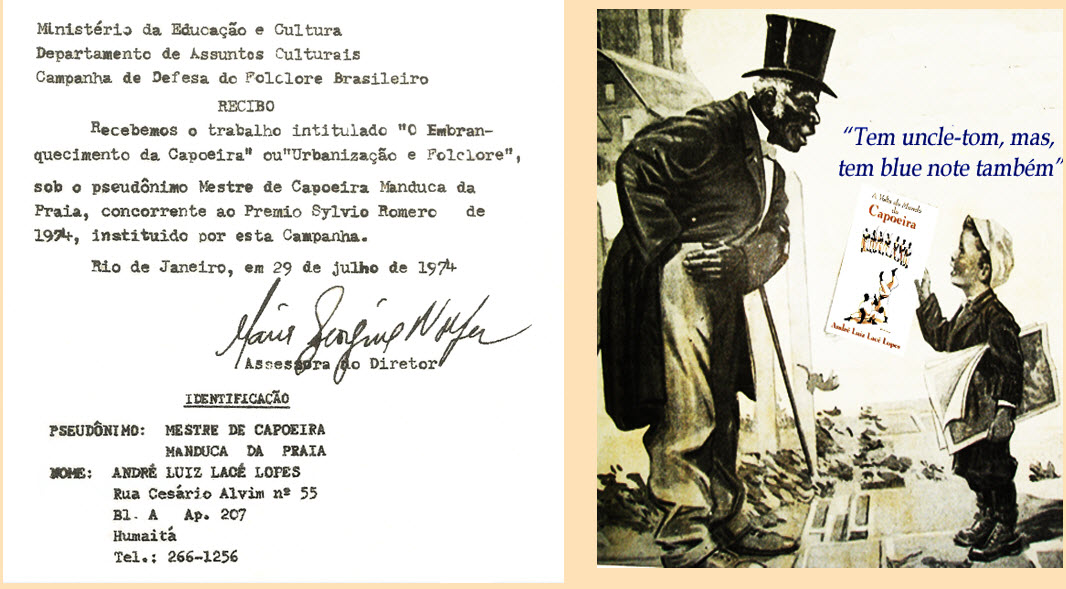 Ministério da Educação e Cultura
Departamento de Assuntos Culturais
Campanha de Defesa do Folclore Brasileiro
RECIBO
Recebemos o trabalho intitulado "O Embran-
quecimento da Capoeira" ou"Urbanização e Folclore",
sob o pseudônimo Mestre de Capoeira Manduca da
Praia, concorrente ao Premio Sylvio Romero de
1974, instituido por esta Campanha.
Rio de Janeiro, em 29 de julho de 1974
Assessora do Diretor
IDENTIFICAÇÃO
PSEUDÔNIMO: MESTRE DE CAPOEIRA
MANDUCA DA PRAIA
NOME: ANDRÉ LUIZ LACÉ LOPES
Rua Cesário Alvim nº 55
Bl. A Ap. 207
Humaitá
Tel.: 266-1256
“Tem uncle-tom, mas,
tem blue note também”
A Volta do Mundo
da
Capoeira
André Luiz Lacé Lopes